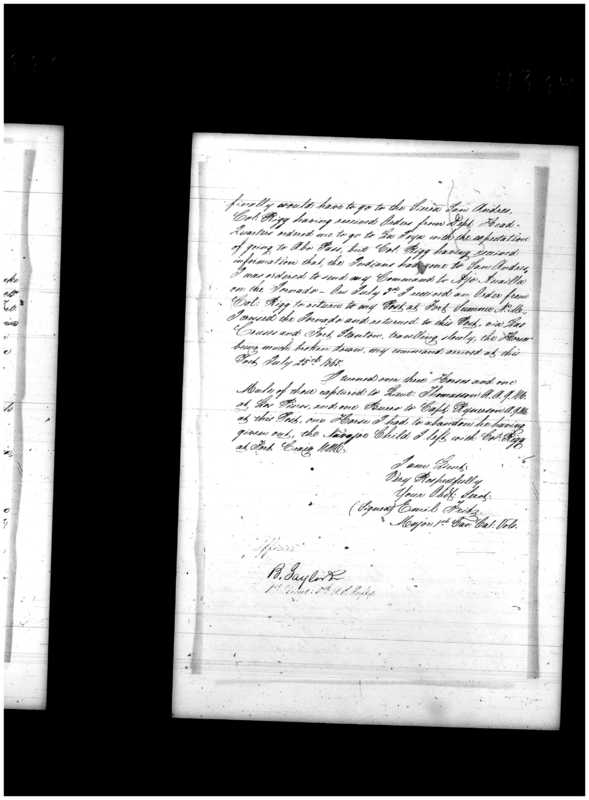 finally would have to go to the Siera San Andres.
Col. Rigg having received Orders from Dept. Head-
Quarters ordered me to go to La Joya with the expectation
of going to Abo Pass, but Col. Rigg having received
information that the Indians had gone to San Andres,
I was ordered to send my Command to Ojo Anaillo
on the Jornado – On July 3rd I received an Order from
Col. Rigg to return to my Post at Fort Sumner N. M.
I crossed the Jornado and returned to this Post, via Las
Cruces and Fort Stanton, travelling slowly, the Horses
being much broken down, my command arrived at this
Post, July 25th 1865.
I turned over three Horses and one
Mule of those captured to Lieut. Thomasson A. A. Q. M.
at Los Pinos, and one Burro to Capt. Rynerson A. Q. M.
at this Post, one Horse I had to abandon he having
given out, the Navajoe Child I left with Col. Rigg
at Fort Craig N. M.
I am Lieut.
Very Respectfully
Your Obdt. Servt.
(Signed) Emil Fritz
Major 1st Cav. Cal. Vols.
Official
B. Taylor
1st Lieut. 5th U. S. Infty